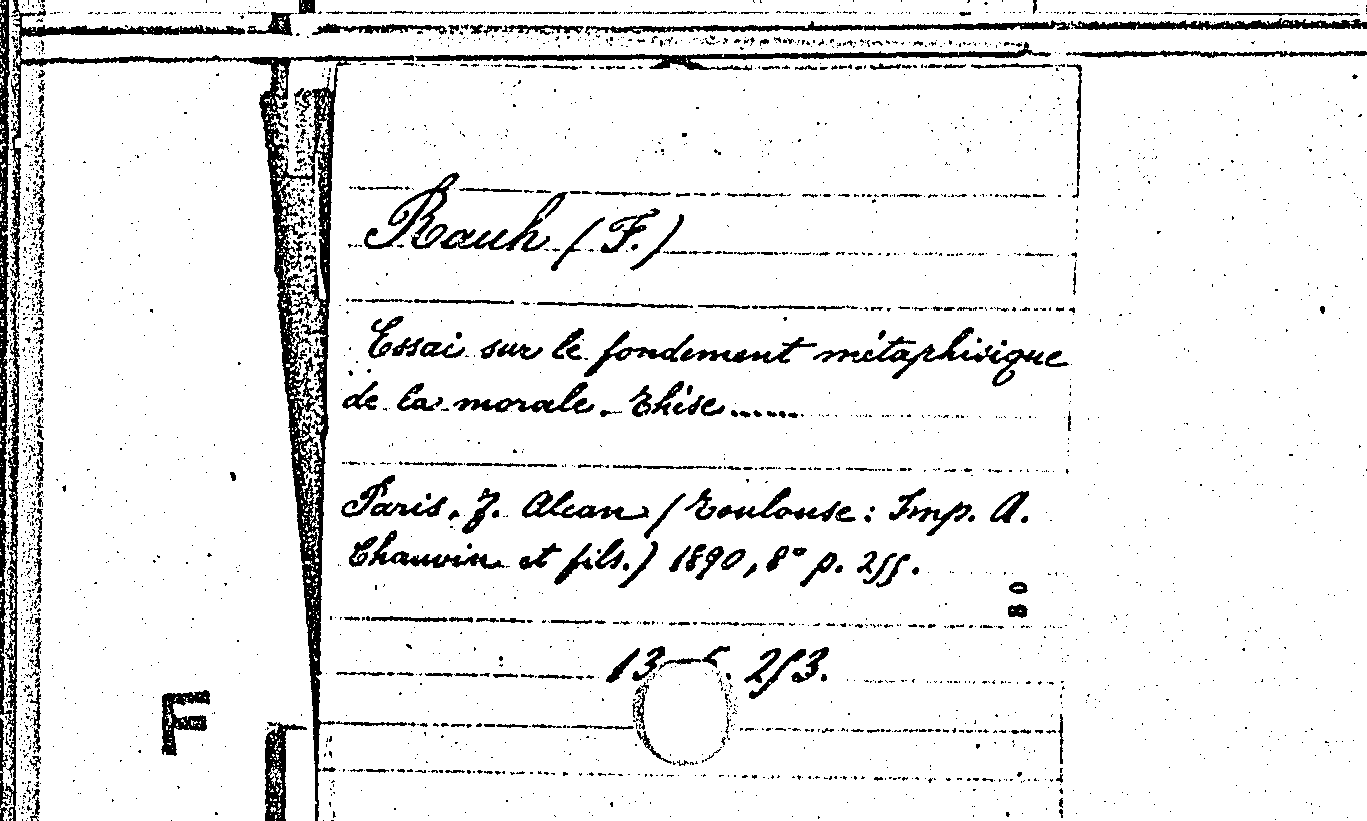 Rauh (F.)
Essai sur le fondement métaphisique
de la morale. Thèse......
Paris, F. Alcan (Toulouse: Imp. A.
Chauvin et fils.) 1890, 8° p. 255.
80
253.
F